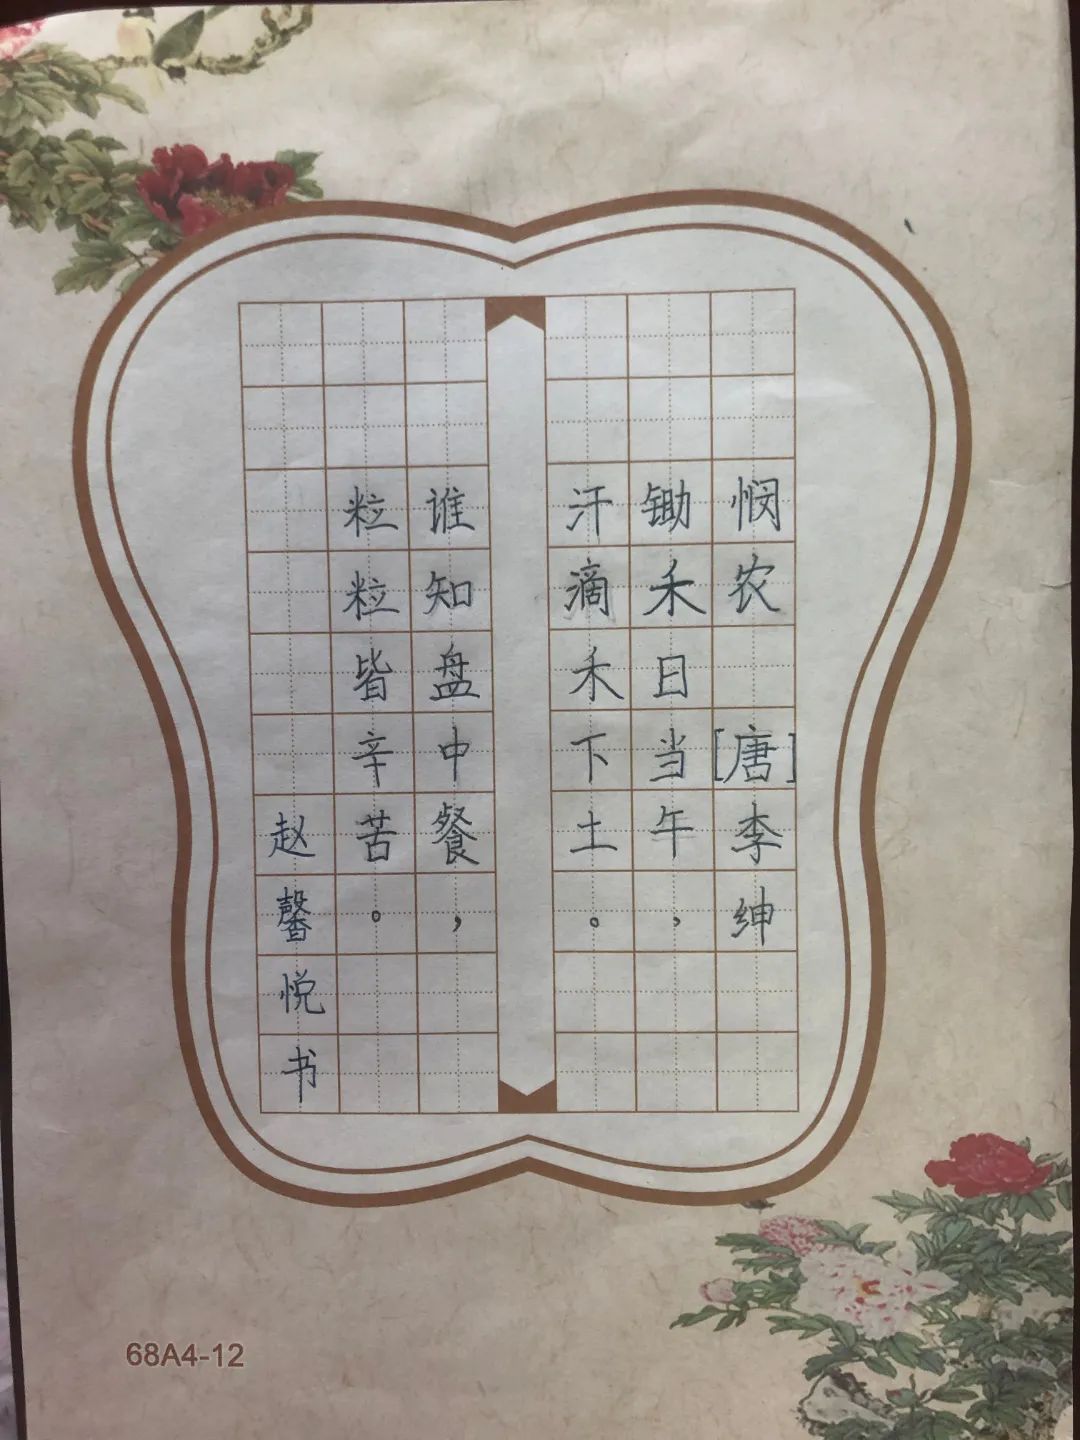 悯农 [唐]李绅
锄禾日当午，
汗滴禾下土。
谁知盘中餐，
粒粒皆辛苦。
赵馨悦书
68A4-12